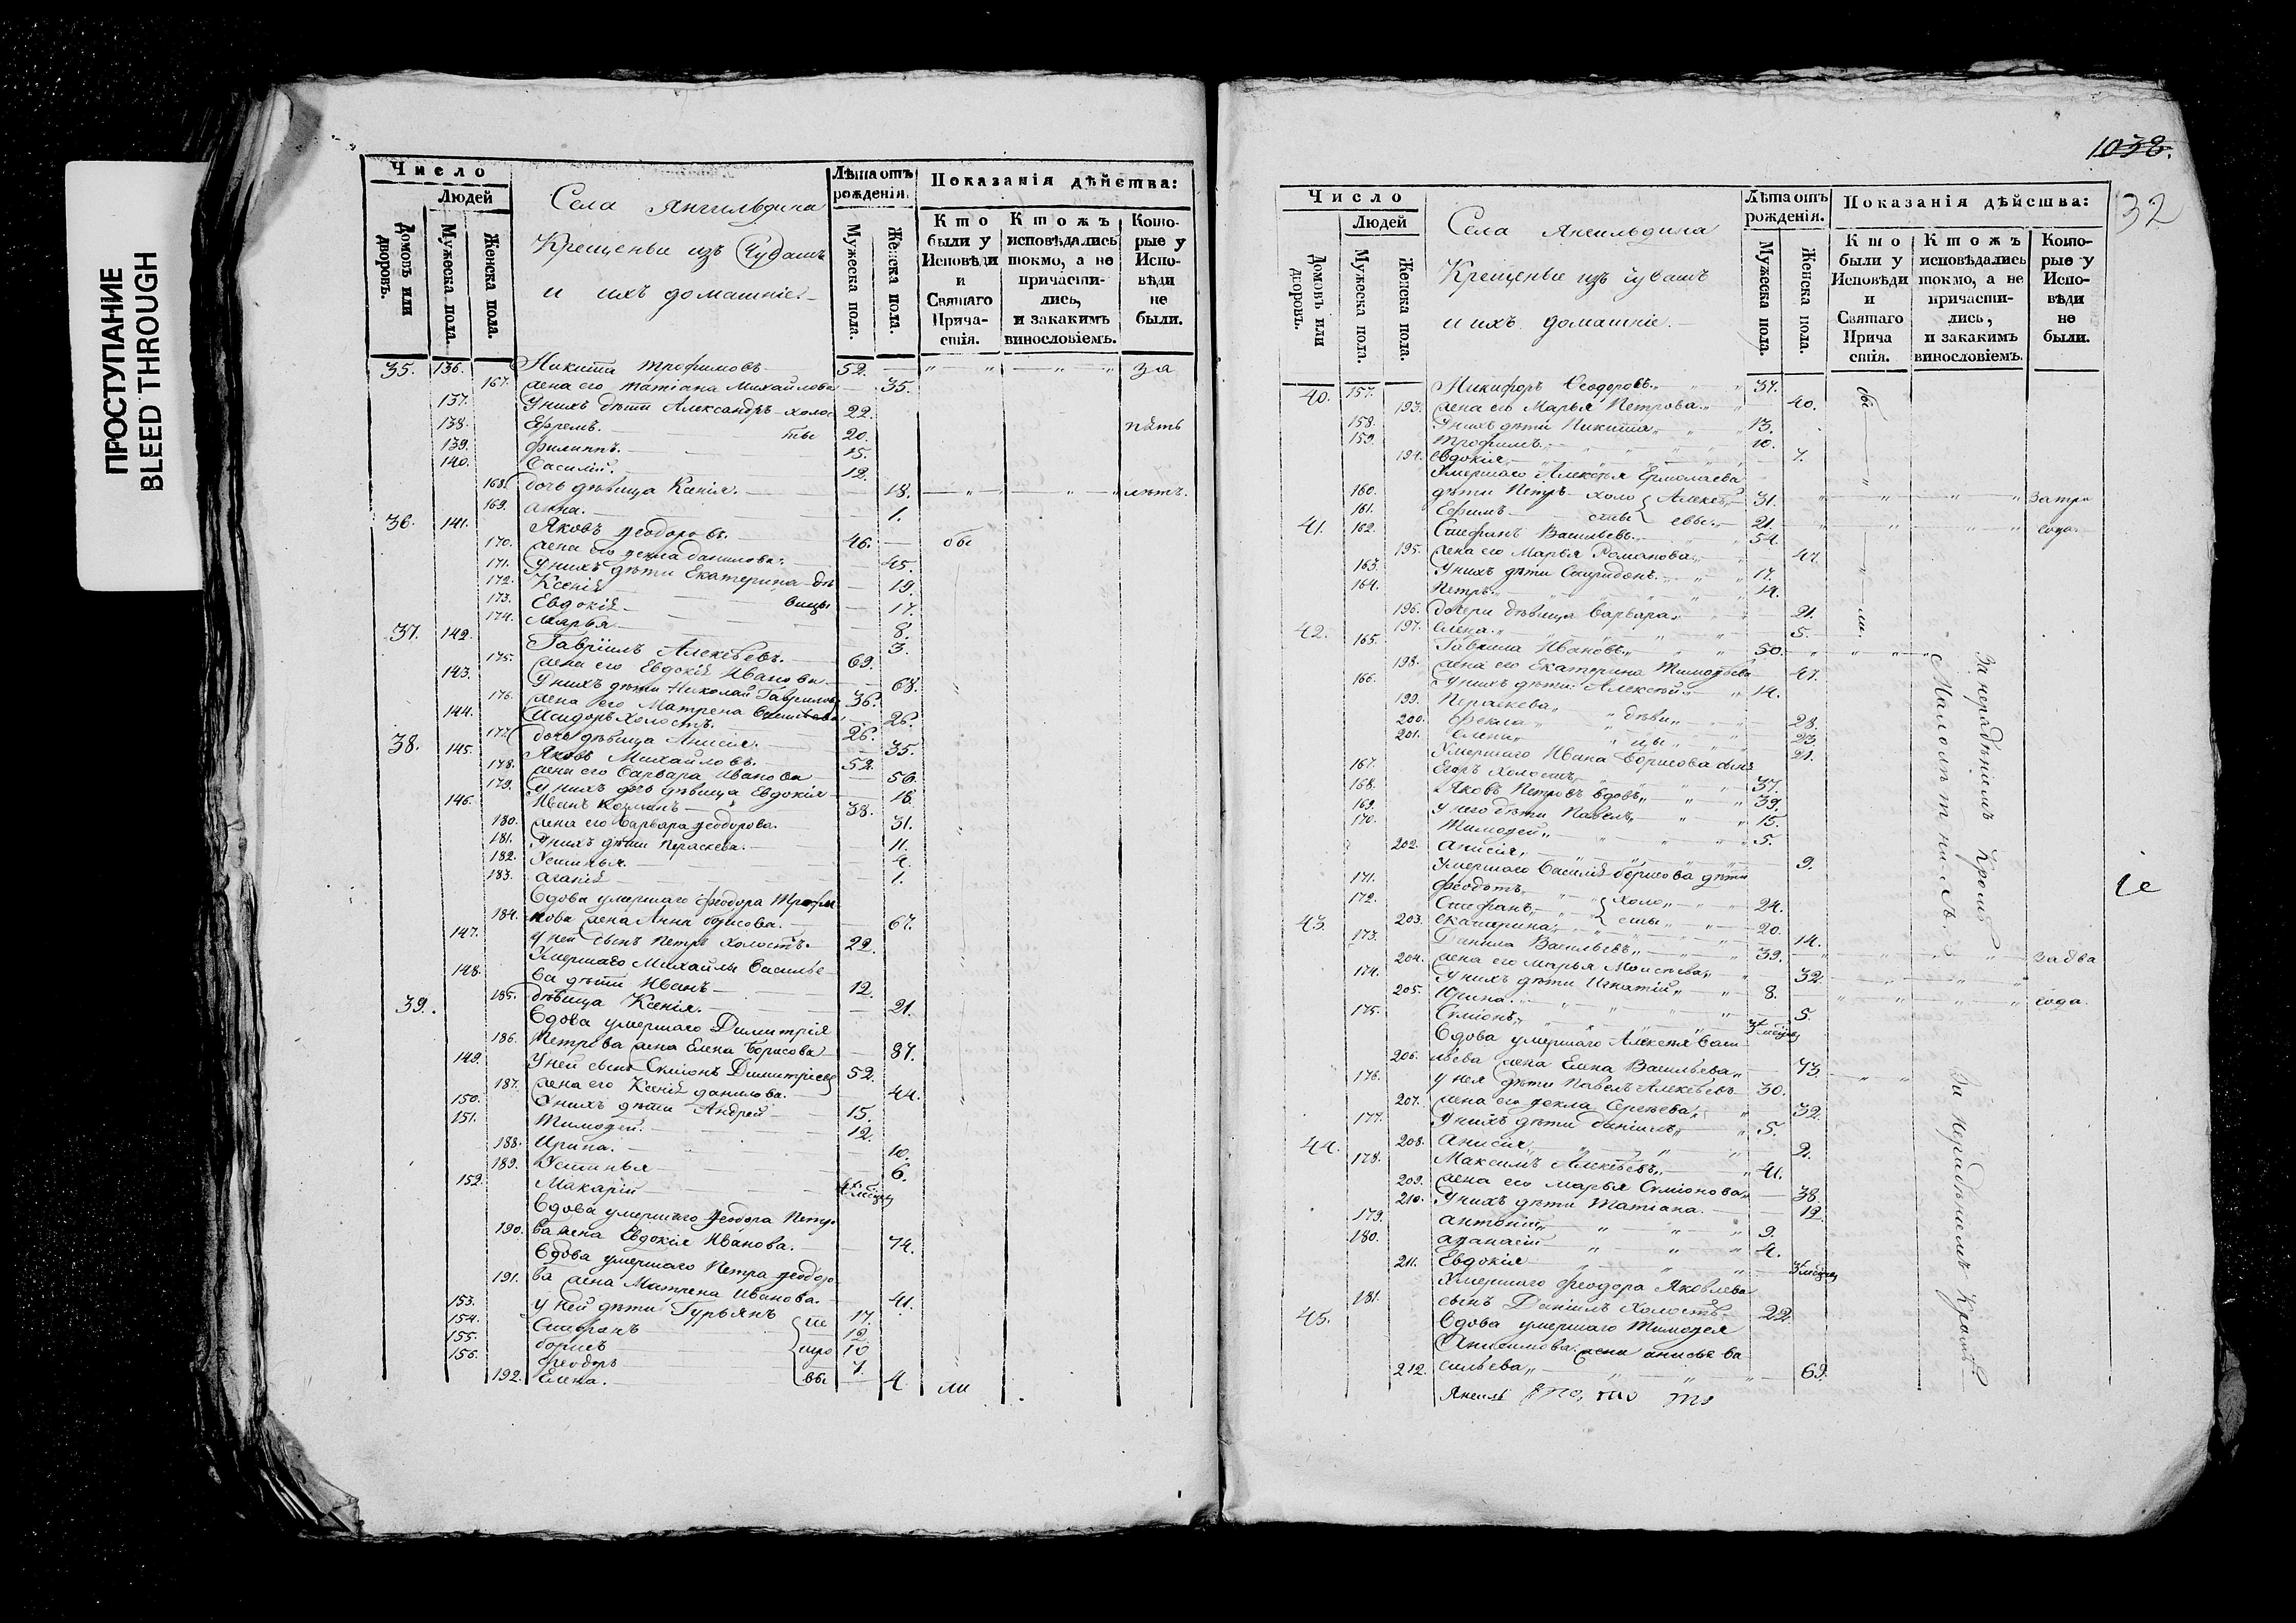 ПРОСТУПАНИЕ
BLEED THROUGH
Число
Людей
Домовъ или дворовъ.
Мужеска пола.
Женска пола.
Села Янгильдина
Крещеные изъ Чувашъ
и ихъ домашніе.
Лѣта отъ рожденія.
Мужеска пола.
Женска пола.
Показанія дѣйства:
Кто были у Исповѣди и Святаго Причастія.
Ктожъ исповѣдались токмо, а не причастились, и закакимъ винословіемъ.
Которые у Исповѣди не были.
35. 136. Никита Трофимовъ 52. за
167. жена его Татіана Михайлова 35.
137. У нихъ дѣти Александръ холос 22.
138. Ефремъ. ты 20. пять
139. Филиппъ. 15.
140. Василій. 12.
168. дочь дѣвица Ксенія. 18. лѣтъ.
169. Анна. 1.
36. 141. Яковъ Ѳеодоровъ. 46. бы
170. жена его Ѳекла Данилова. 45.
171. У нихъ дѣти Екатерина дѣ 19.
172. Ксенія вицы 17.
173. Евдокія 8.
174. Марья 3.
37. 142. Гавріилъ Алексѣевъ. 69.
175. жена его Евдокія Иванова 68.
143. У нихъ дѣти Николай Гавриловъ 36.
176. жена его Матрена 26.
144. Исидоръ холостъ. 26.
177. дочь дѣвица Анисія. 35.
38. 145. Яковъ Михайловъ. 52.
178. жена его Варвара Иванова 56.
179. У нихъ дочь дѣвица Евдокія 18.
146. Иванъ 38.
180. жена его Варвара Ѳеодорова. 31.
181. У нихъ дѣти Параскева. 11.
182. Устинья. 4.
183. 1.
Вдова умершаго Ѳеодора Трофи
184. мова жена Анна Борисова. 67.
147. У ней сынъ Петръ холостъ. 22.
Умершаго Михайлы Василье
148. ва дѣти Иванъ 12.
185. дѣвица Ксенія. 21.
39. Вдова умершаго Димитрія
186. Петрова жена Елена Борисова 87.
149. У ней сынъ Симіонъ Димитріевъ 52.
187. жена его Ксенія Данилова. 44.
150. У нихъ дѣти Андрей 15.
151. Тимоѳей. 12.
188. Ирина. 10.
189. Устинья 6.
152. Макарій 4хъ мѣсяцъ
Вдова умершаго Ѳеодора Петро
190. ва жена Евдокія Иванова. 74.
Вдова умершаго Петра Ѳеодоро
191. ва жена Матрена Иванова. 41.
153. У ней дѣти Гурьянъ 17.
154. Стефанъ 12.
155. Борисъ 10
156. Ѳеодоръ 7.
192. Елена. 4. ли
1038.
32
Число
Людей
Домовъ или дворовъ.
Мужеска пола.
Женска пола.
Села Янгильдина
Крещеные изъ Чувашъ
и ихъ домашніе.
Лѣта отъ рожденія.
Мужеска пола.
Женска пола.
Показанія дѣйства:
Кто были у Исповѣди и Святаго Причастія.
Ктожъ исповѣдались токмо, а не причастились, и закакимъ винословіемъ.
Которые у Исповѣди не были.
40. 157. Никифоръ Ѳеодоровъ 37. бы
193. жена его Марья Петрова 40.
158. У нихъ дѣти Никита 13.
159. Трофимъ 10.
194. Евдокія 7.
Умершаго Алексѣя Ермолаева
160. дѣти Петръ холо Алексѣ 31. за три
161. Ефимъ сты евы 21. года.
41. 162. Стефанъ Васильевъ 54.
195. жена его Марья Романова 47.
163. У нихъ дѣти Спиридонъ 17.
164. Петръ 14.
196. дочери дѣвица Варвара 21. ли.
197. Елена 5.
42. 165. Гаврила Ивановъ 50.
198. жена его Екатерина Тимоѳѣева 47.
166. У нихъ дѣти Алексѣй 14.
199. Параскева дѣви 28.
200. Ѳекла 23.
201. Елена цы 21.
Умершаго Ивана Борисова сынъ
167. Егоръ холостъ 37.
168. Яковъ Петровъ вдовъ 39.
169. У него дѣти Павелъ 15.
170. Тимоѳей 5.
202. Анисія 9.
Умершаго Василія Борисова дѣти
171. Ѳеодотъ холо 24.
172. Стефанъ сты 20.
203. Екатерина 14.
43. 173. Данила Васильевъ 39. за два
204. жена его Марья Моисеева 32.
174. У нихъ дѣти Игнатій 8. года.
205. Ирина 5.
175. Симіонъ мѣсяц
Вдова умершаго Алексѣя Васи
206. льева жена Елена Васильева 73.
176. У нея дѣти Павелъ Алексѣевъ 30.
207. жена его Ѳекла Сергѣева 32.
177. У нихъ дѣти Даніилъ 5.
208. Анисія 2.
44. 178. Максимъ Алексѣевъ 41.
209. жена его Марья Симіонова 38.
210. У нихъ дѣти Татіана. 12.
179. Антоній 9.
180. Аѳанасій 4.
211. Евдокія 3 мѣсяц
Умершаго Ѳеодора Яковлева
181. сынъ Даніилъ холостъ 22.
45. Вдова умершаго Тимоѳея
Анисимова жена Анисья Ва
212. сильева 69.
Малолѣтнія.
За нерадѣніемъ Кромѣ
За нерадѣніемъ Кромѣ